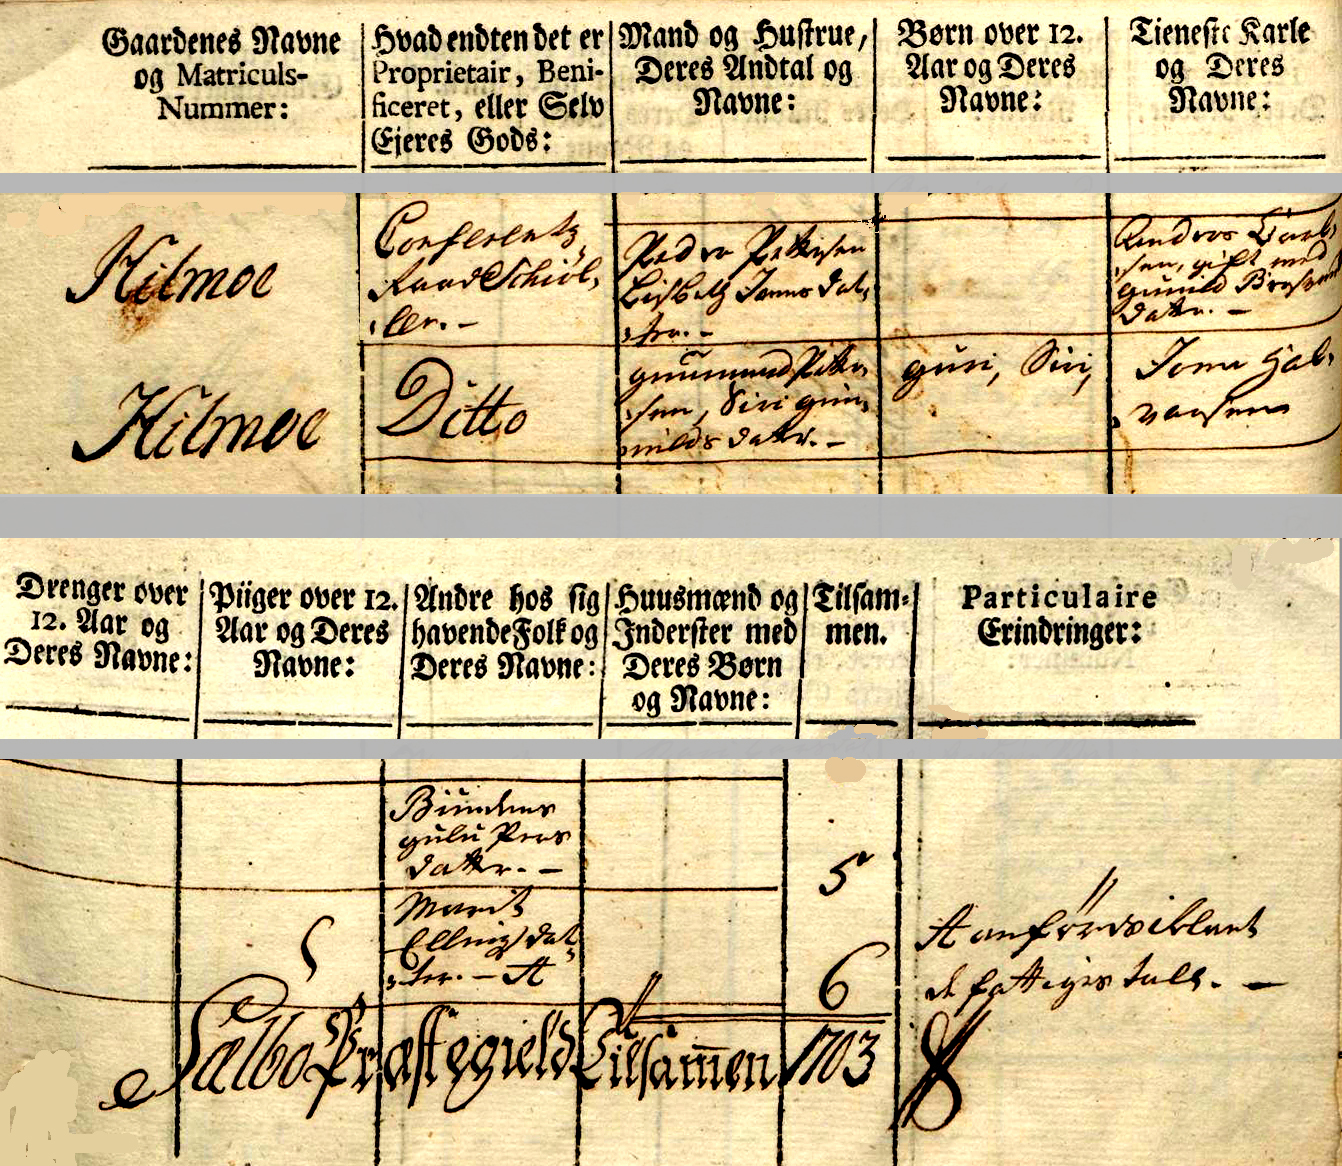 Gaardenes Navne
og Matriculs-
Nummer:
Hvad endten det er
Proprietair, Beni-
ficeret, eller Selv
Ejeres Gods:
Mand og Hustrue,
Deres Andtal og
Navne:
Børn over 12.
Aar og Deres
Navne:
Tieneste Karle
og Deres
Navne:
Kilmoe
Conferentz
Raad Schiöl,
ler. -
Peder Pettersen
Lisbeth Jonns dat,
ter. -
Anders Carl,
sen, gift med
Gunild
datter. -
Kilmoe
Ditto
Gunmund Petter,
sen, Siri Gun,
milds datter. -
Guri, Siri,
Jonn Hal,
vorsenn
Drenger over
12. Aar og
Deres Navne:
Piiger over 12.
Aar og Deres
Navne:
Andre hos sig
havende Folk og
Deres Navne:
Huusmænd og
Inderster med
Deres Børn
og Navne:
Tilsam-
men.
Particulaire
Erindringer:
Bundens
Gulu Pers
datter. -
5
Marit
Ellings dat,
ter. - A
6
A anföres iblant
de fattiges tall. -
Sælboe Præstegield Tilsam̄en 1703